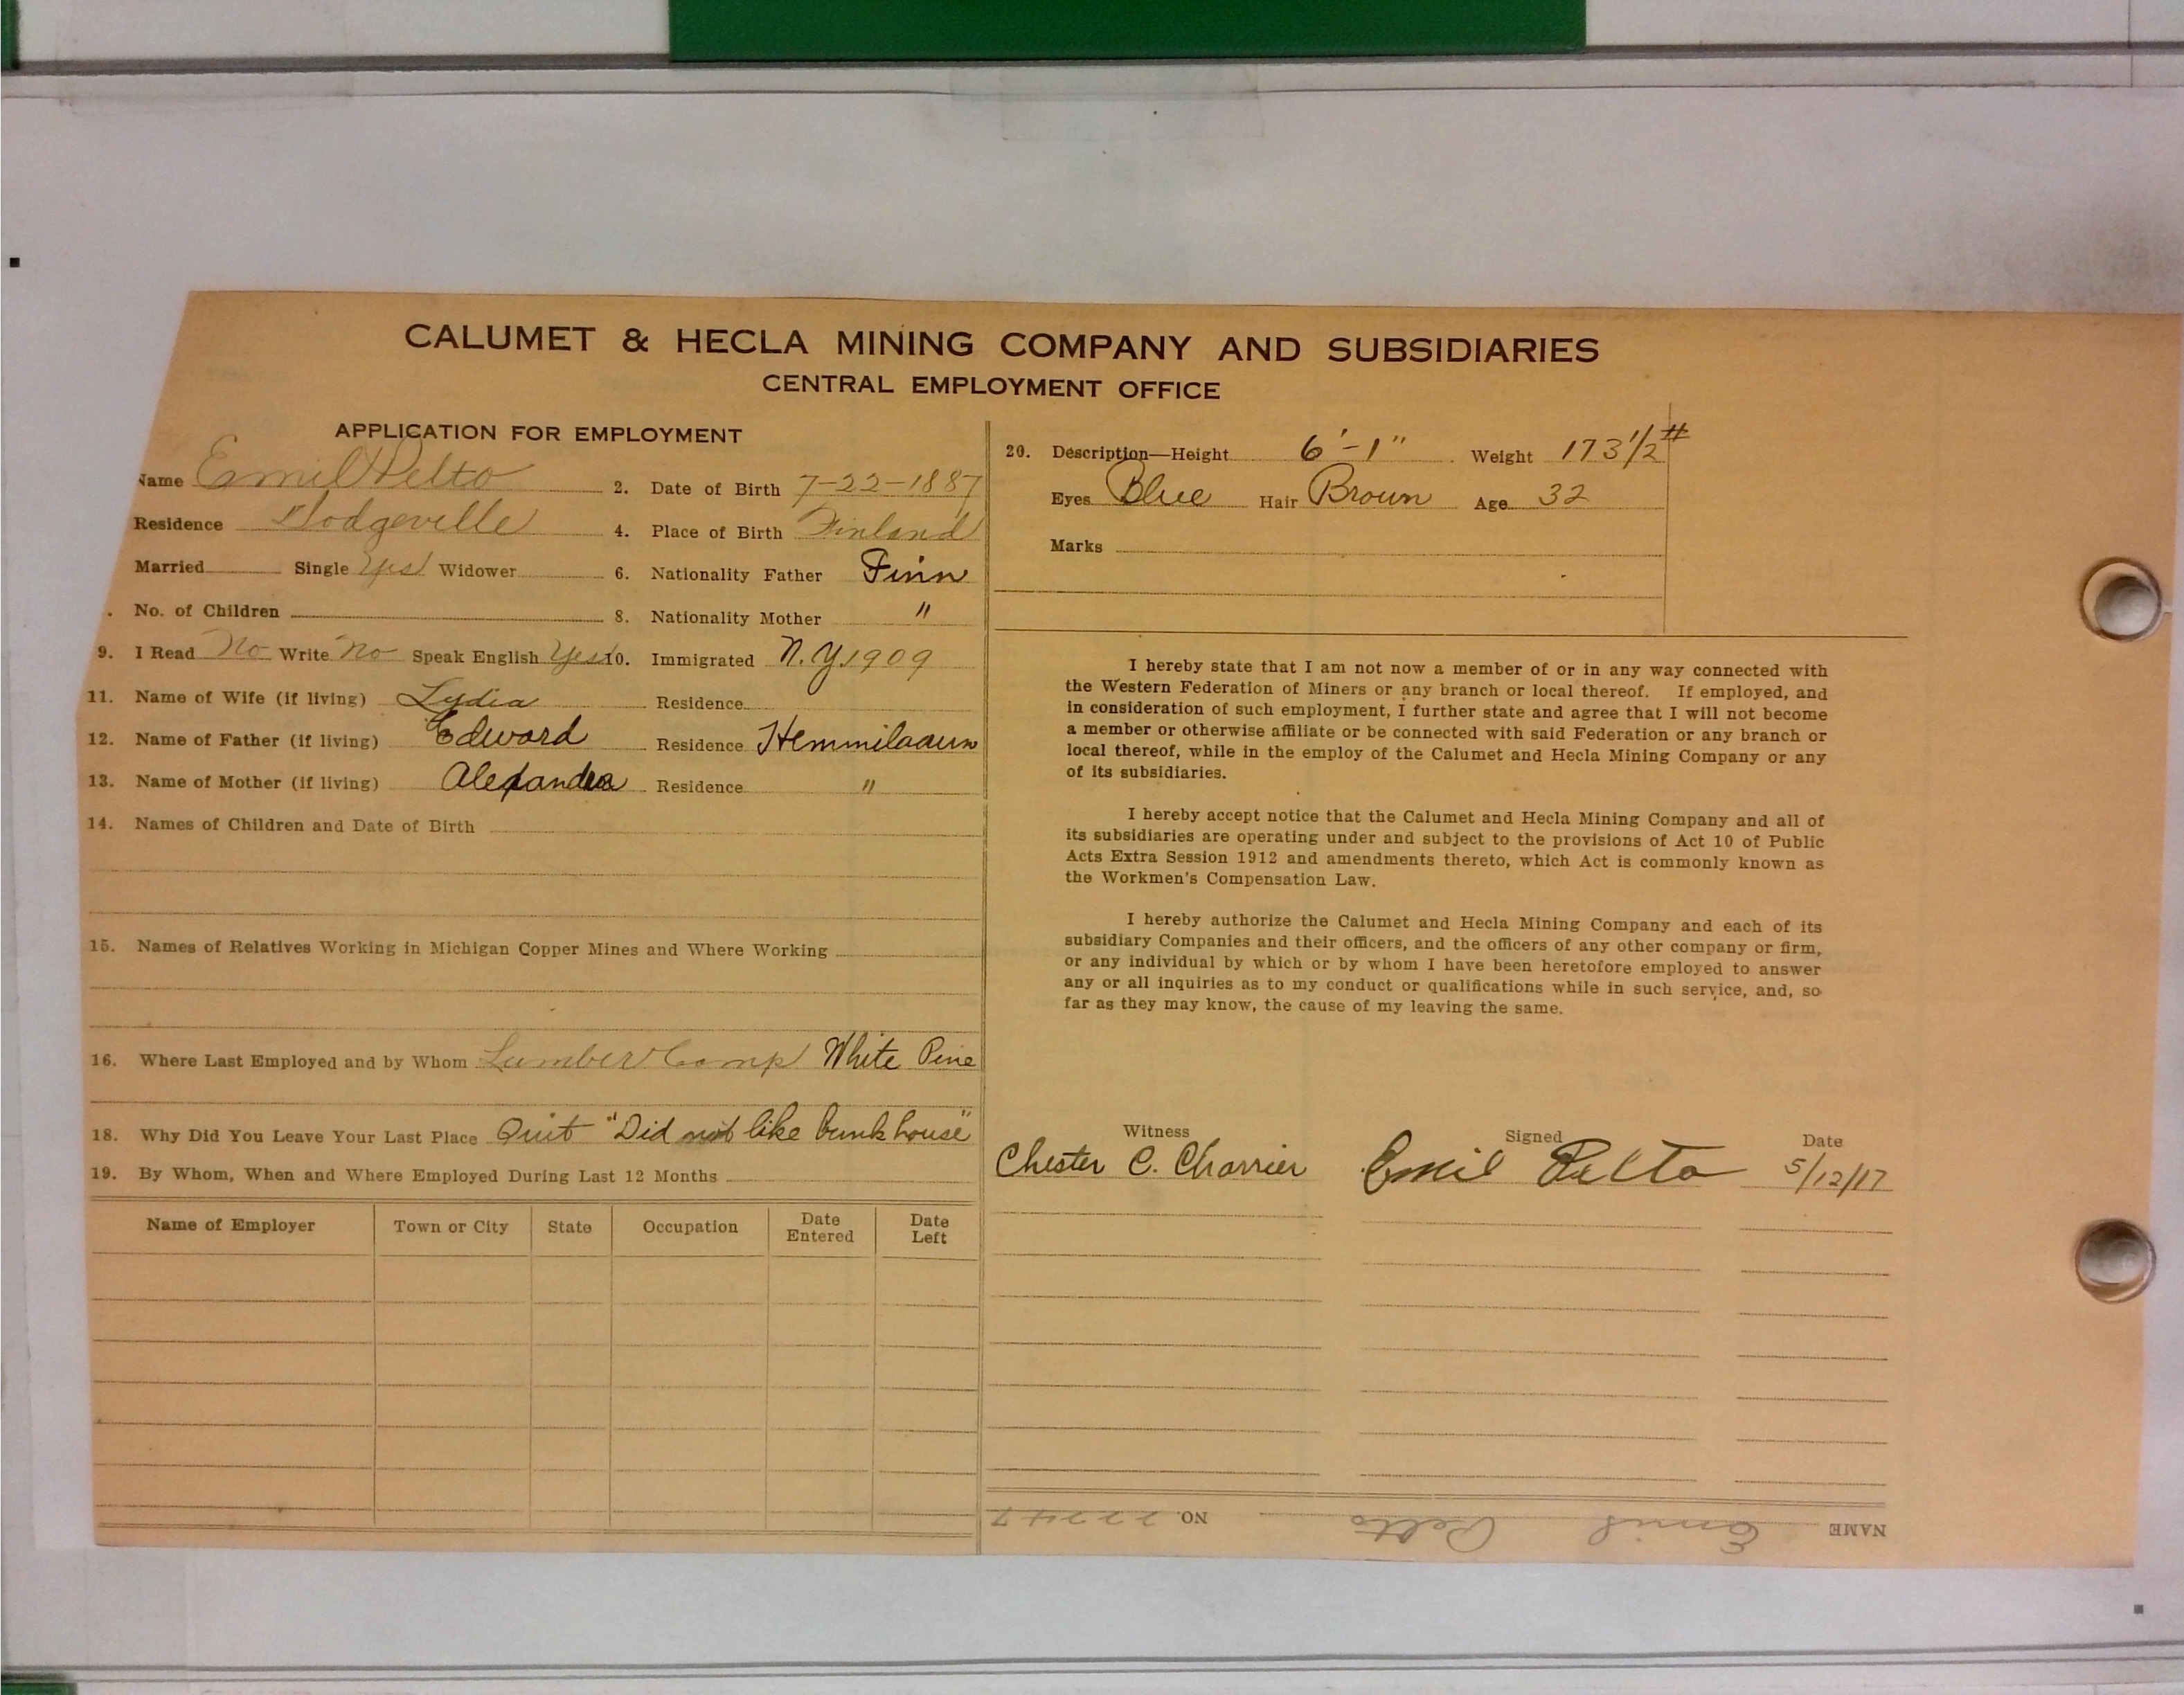 CALUMET & HECLA MINING COMPANY AND SUBSIDIARIES
CENTRAL EMPLOYMENT OFFICE
APPLICATION FOR EMPLOYMENT
Name Emil Pelto 2. Date of Birth 7-22-1887
Residence Dodgeville 4. Place of Birth Finland
Married Single Yes Widower 6. Nationality Father Finn
. No. of Children 8. Nationality Mother "
9. I Read No Write No Speak English Yes 10. Immigrated N.Y. 1909
11. Name of Wife (if living) Lydia Residence
12. Name of Father (if living) Edward Residence
13. Name of Mother (if living) Alexandra Residence "
14. Names of Children and Date of Birth
15. Names of Relatives Working in Michigan Copper Mines and Where Working
16. Where Last Employed and by Whom Lumber Camp White Pine
18. Why Did You Leave Your Last Place Quit "Did not like bunkhouse"
19. By Whom, When and Where Employed During Last 12 Months
Name of Employer Town or City State Occupation Date Entered Date Left
20. Description—Height 6'-1" Weight 173 1/2 #
Eyes Blue Hair Brown Age 32
Marks
I hereby state that I am not now a member of or in any way connected with
the Western Federation of Miners or any branch or local thereof. If employed, and
in consideration of such employment, I further state and agree that I will not become
a member or otherwise affiliate or be connected with said Federation or any branch or
local thereof, while in the employ of the Calumet and Hecla Mining Company or any
of its subsidiaries.
I hereby accept notice that the Calumet and Hecla Mining Company and all of
its subsidiaries are operating under and subject to the provisions of Act 10 of Public
Acts Extra Session 1912 and amendments thereto, which Act is commonly known as
the Workmen's Compensation Law.
I hereby authorize the Calumet and Hecla Mining Company and each of its
subsidiary Companies and their officers, and the officers of any other company or firm,
or any individual by which or by whom I have been heretofore employed to answer
any or all inquiries as to my conduct or qualifications while in such service, and, so
far as they may know, the cause of my leaving the same.
Witness Signed Date
Chester C. Charrier Emil Pelto 5/12/17
NAME Emil Pelto NO. 22247